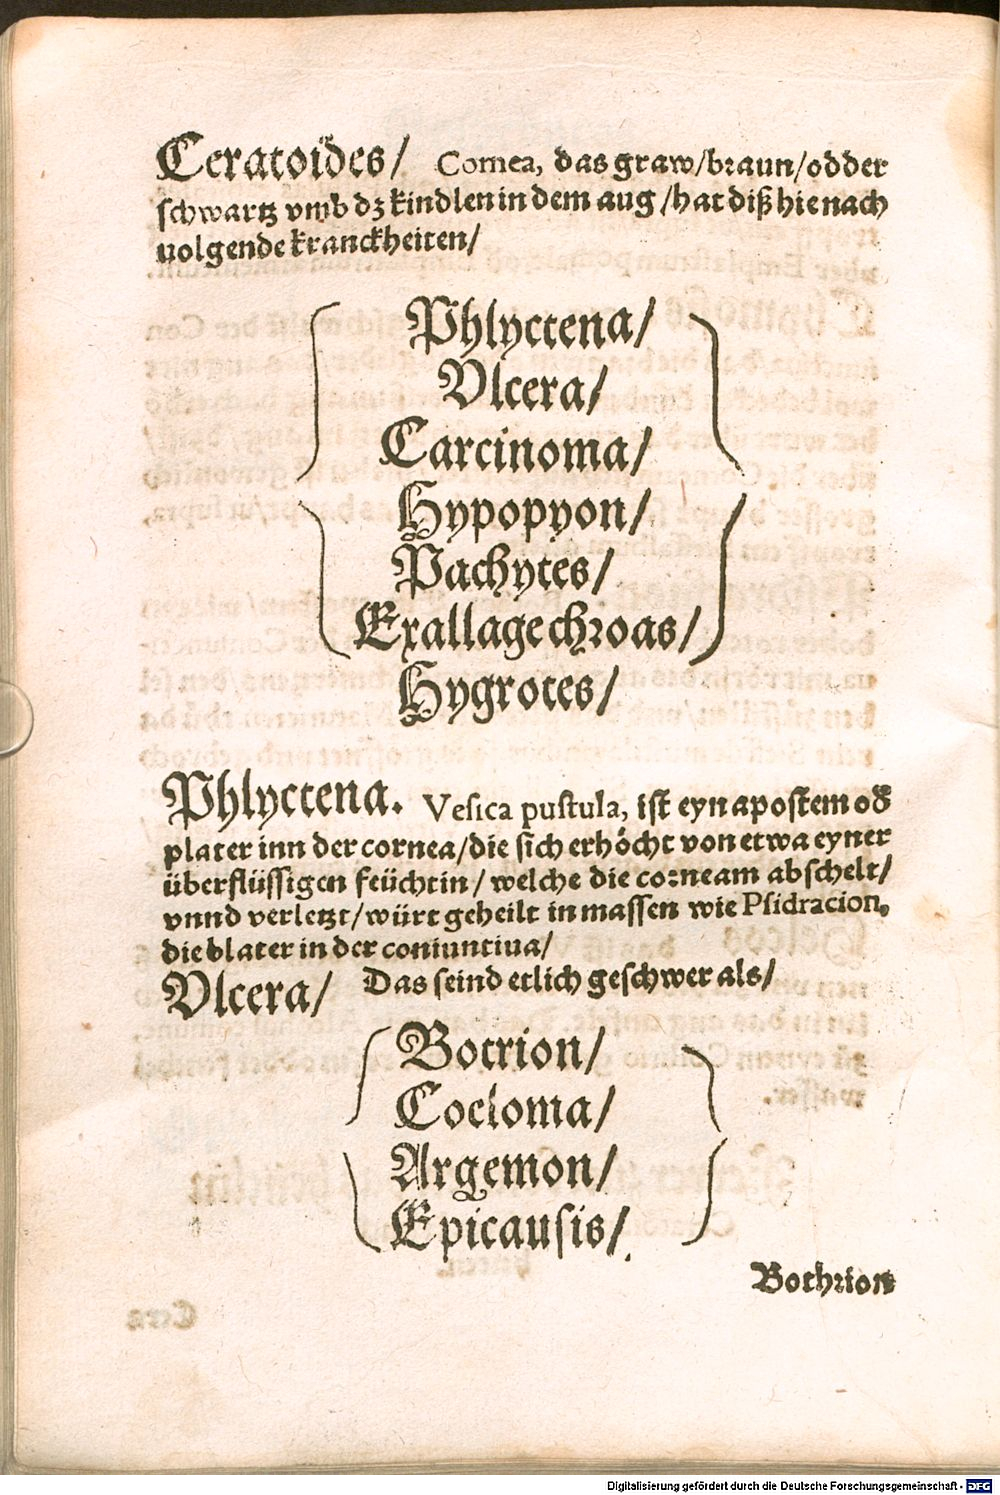 Ceratoides/ Cornea, das graw/braun/odder
schwartz vmb dz kindlen in dem aug/hat diß hie nach
uolgende kranckheiten/
Phlyctena/
Vlcera/
Carcinoma/
Hypopyon/
Pachytes/
Exallage chroas/
Hygrotes/
Phlyctena. Vesica pustula, ist eyn apostem od
plater inn der cornea/die sich erhöcht von etwa eyner
überflüssigen feüchtin/welche die corneam abschelt/
vnnd verletzt/würt geheilt in massen wie Psidracion,
die blater in der coniuntiua/
Vlcera/ Das seind etlich geschwer als/
Botrion/
Coeloma/
Argemon/
Epicausis/.
Bothrion
Digitalisierung gefördert durch die Deutsche Forschungsgemeinschaft - DFG